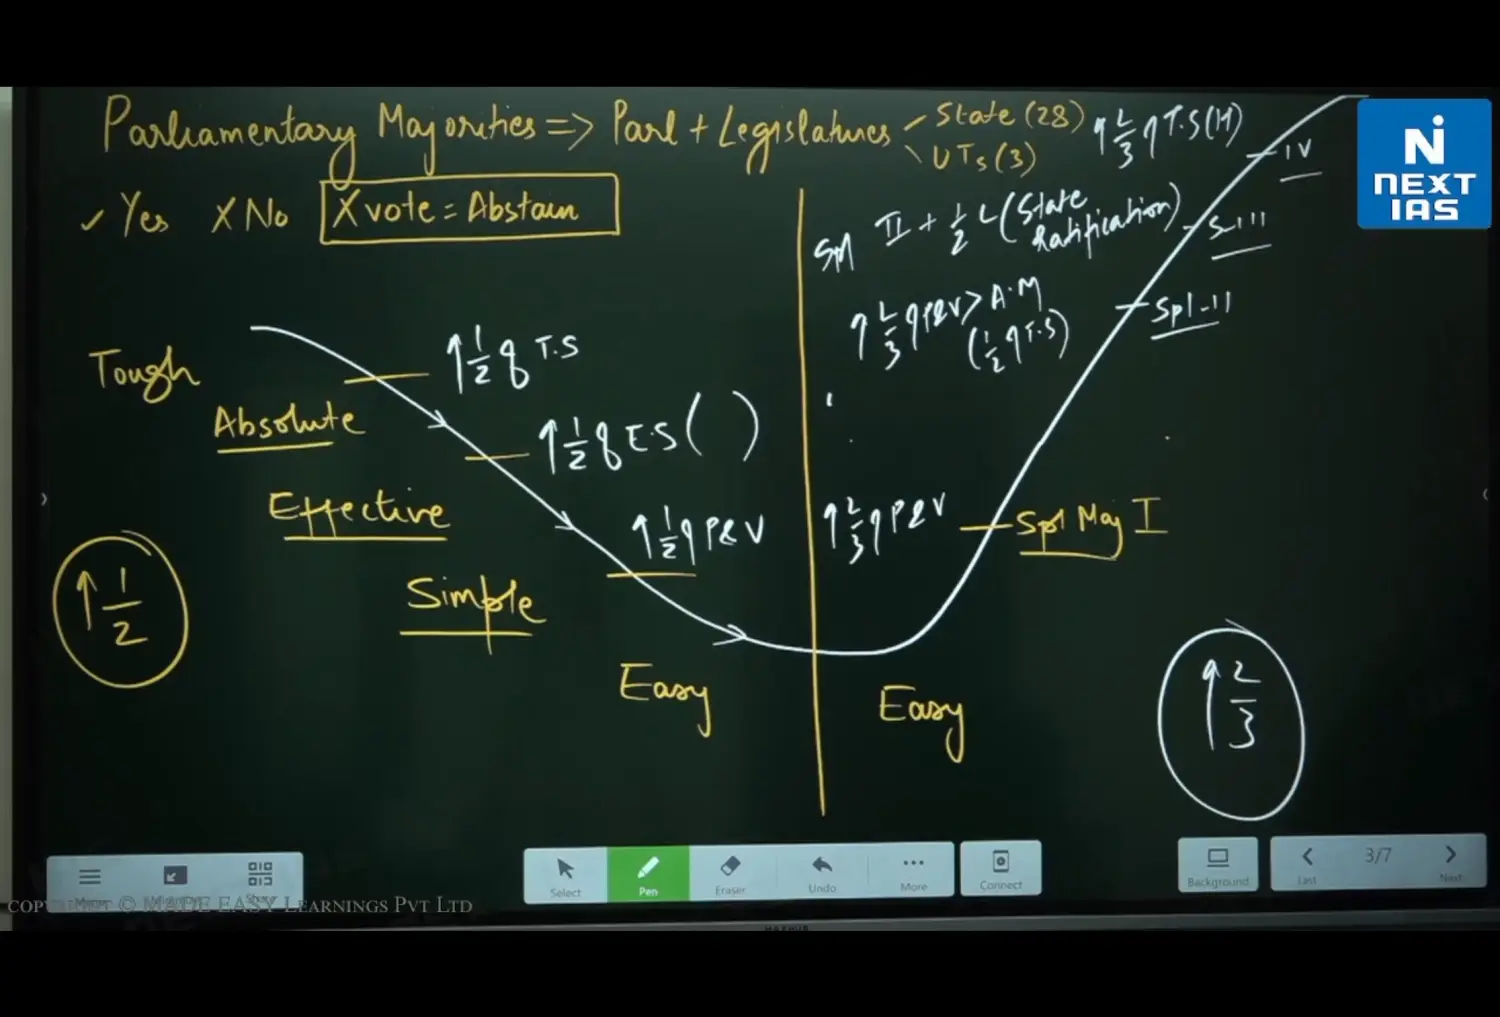 Parliamentary Majorities => Parl + Legislatures
State (28)
UTs (3)
↑ 2/3 q T.S (H)
✓ Yes X No X vote = Abstain
Spl II + 1/2 L (State Ratification)
IV
S-III
Spl-II
↑ 2/3 q P&V > A.M
(1/2 q T.S)
Tough
↑ 1/2 q T.S
Absolute
↑ 1/2 q E.S ( )
Effective
↑ 1/2 q P&V
Simple
↑ 1/2
↑ 2/3 q P&V
Spl Maj I
Easy
Easy
↑ 2/3
NEXT
IAS
Select
Pen
Eraser
Undo
More
Connect
Background
Last
3/7
Next
COPYRIGHT © MADE EASY LEARNINGS PVT LTD